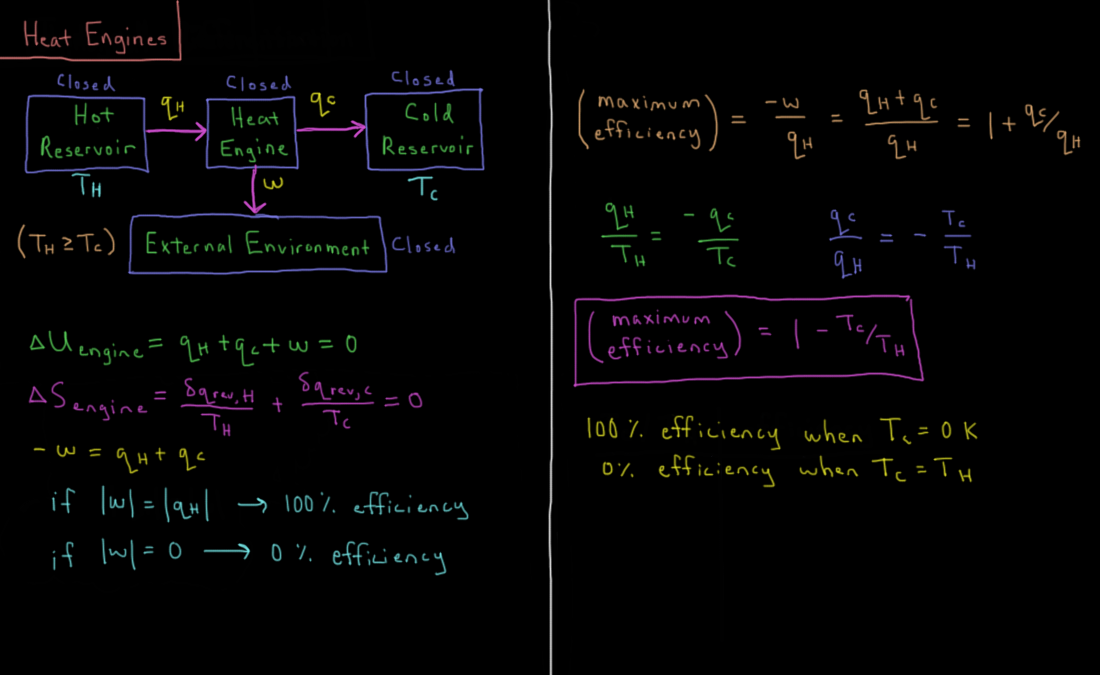 Heat Engines
Closed
Closed
Closed
qH
qc
Hot
Reservoir
Heat
Engine
Cold
Reservoir
TH
w
Tc
(TH ≥ Tc)
External Environment
Closed
ΔUengine = qH + qc + w = 0
ΔSengine = δqrev,H/TH + δqrev,c/Tc = 0
-w = qH + qc
if |w| = |qH| → 100% efficiency
if |w| = 0 → 0% efficiency
(maximum
efficiency) = -w/qH = (qH + qc)/qH = 1 + qc/qH
qH/TH = -qc/Tc
qc/qH = -Tc/TH
(maximum
efficiency) = 1 - Tc/TH
100% efficiency when Tc = 0 K
0% efficiency when Tc = TH